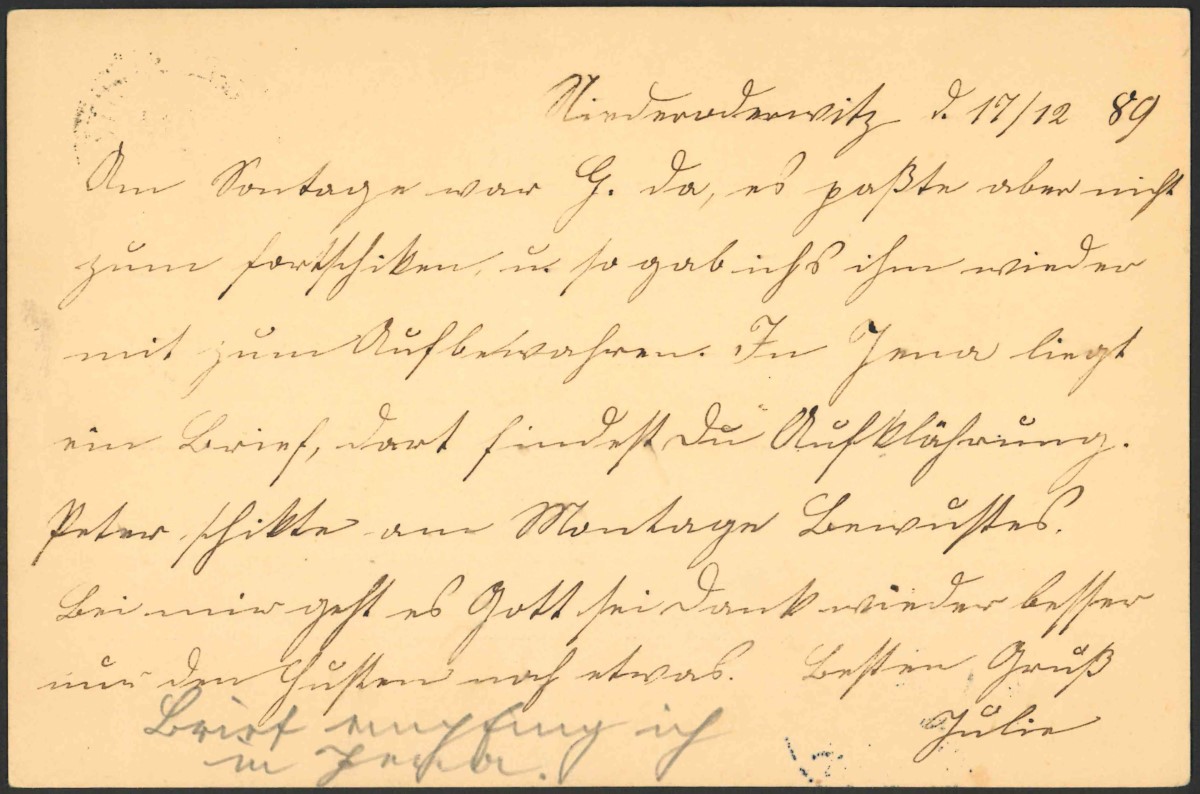 Niederoderwitz d. 17/12 89
Am Sontage war G. da, es paßte aber nicht
zum fortschiken, u. so gab ichs ihm wieder
mit zum Aufbewahren. In Jena liegt
ein Brief, dort findest Du Aufklährung.
Peter schikte am Montage Bewustes.
Bei mir geht es Gott sei Dank wieder besser
nur den Husten noch etwas. Besten Gruß
Julie
Brief empfing ich
in Jena.